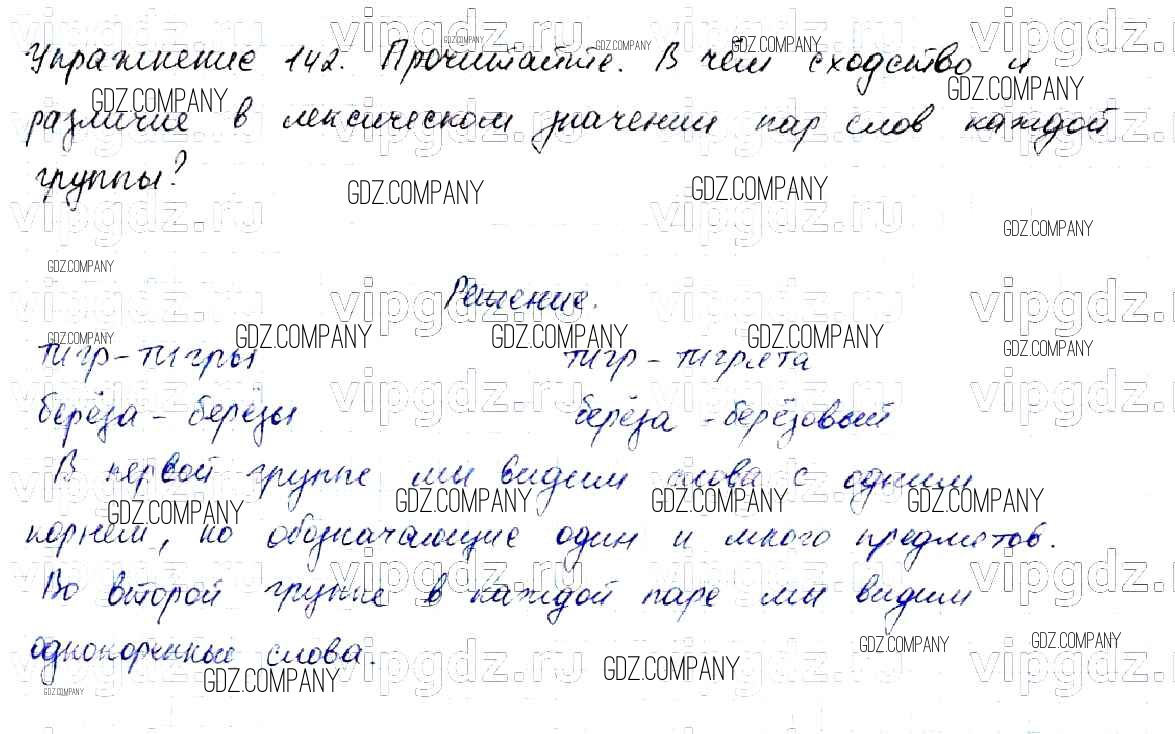 Упражнение 142. Прочитайте. В чём сходство и
различие в лексическом значении пар слов каждой
группы?
Решение.
тигр – тигры тигр – тигрята
берёза – берёзы берёза – берёзовый
В первой группе мы видим слова с одним
корнем, но обозначающие один и много предметов.
Во второй группе в каждой паре мы видим
однокоренные слова.
vipgdz.ru
GDZ.COMPANY